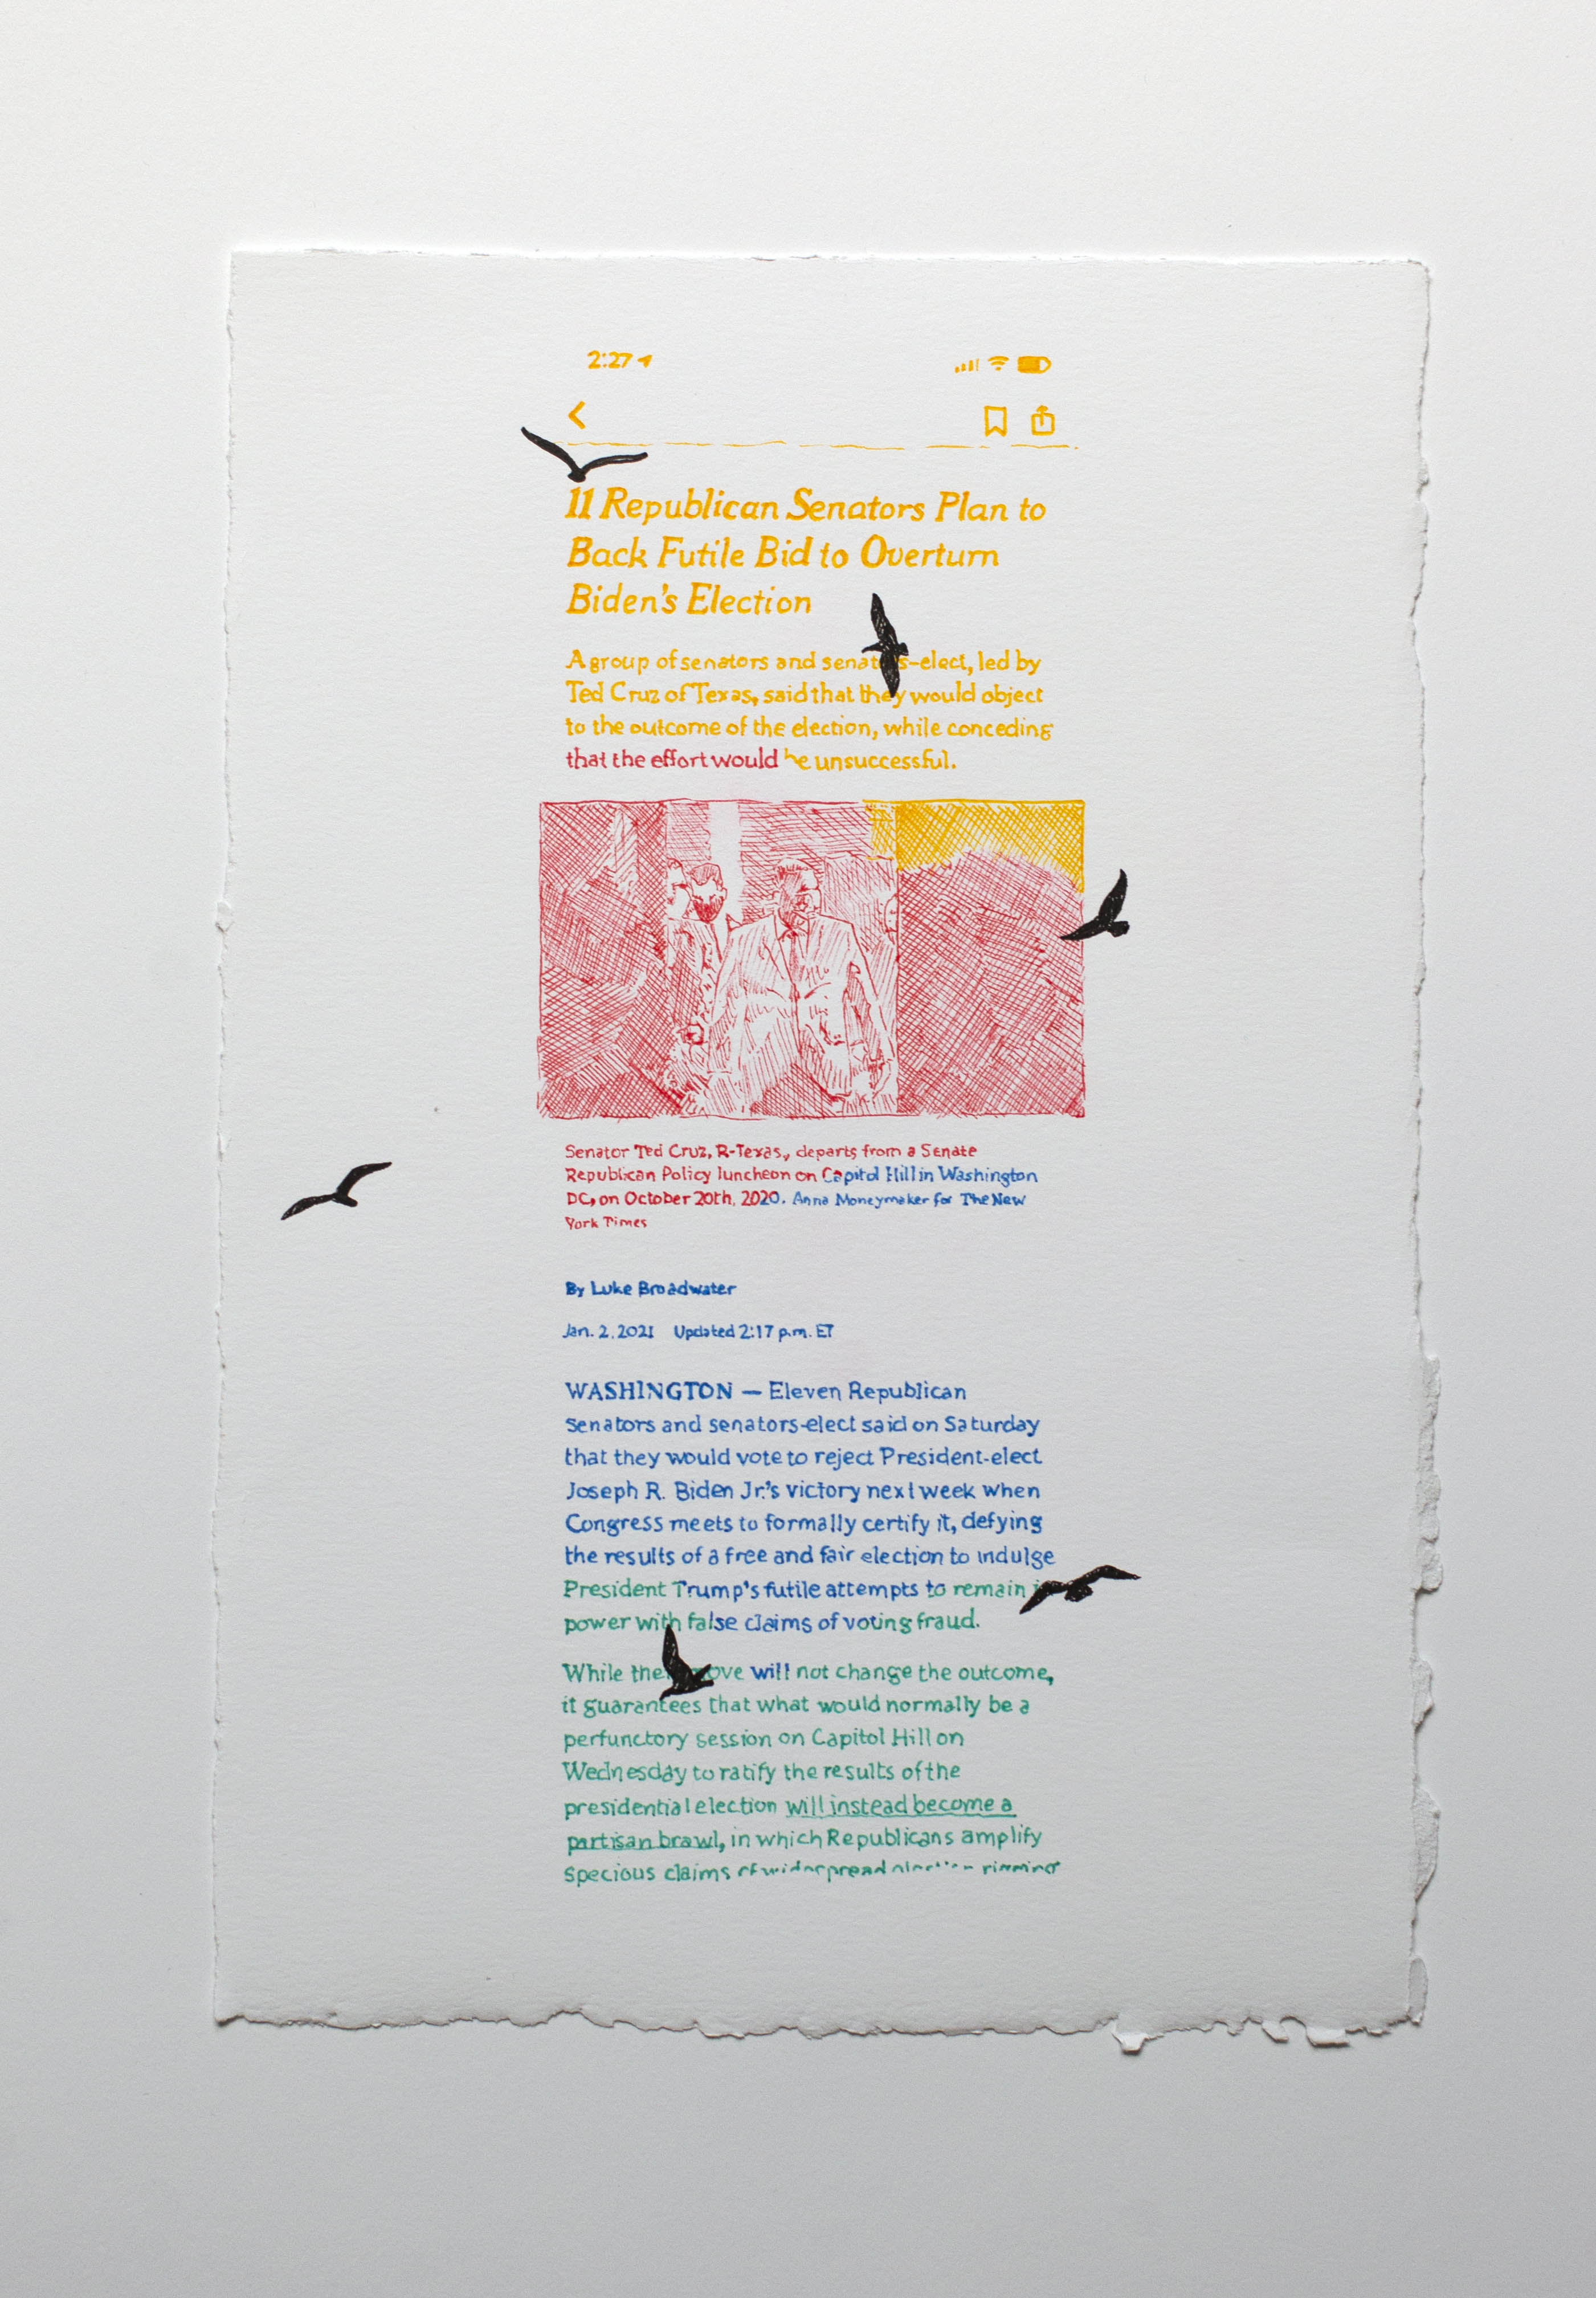 2:27
11 Republican Senators Plan to
Back Futile Bid to Overturn
Biden's Election
A group of senators and senators-elect, led by
Ted Cruz of Texas, said that they would object
to the outcome of the election, while conceding
that the effort would be unsuccessful.
Senator Ted Cruz, R-Texas, departs from a Senate
Republican Policy luncheon on Capitol Hill in Washington
DC, on October 20th, 2020. Anna Moneymaker for The New
York Times
By Luke Broadwater
Jan. 2, 2021 Updated 2:17 p.m. ET
WASHINGTON — Eleven Republican
senators and senators-elect said on Saturday
that they would vote to reject President-elect
Joseph R. Biden Jr.'s victory next week when
Congress meets to formally certify it, defying
the results of a free and fair election to indulge
President Trump's futile attempts to remain
power with false claims of voting fraud.
While the will not change the outcome,
it guarantees that what would normally be a
perfunctory session on Capitol Hill on
Wednesday to ratify the results of the
presidential election will instead become a
partisan brawl, in which Republicans amplify
specious claims of widespread